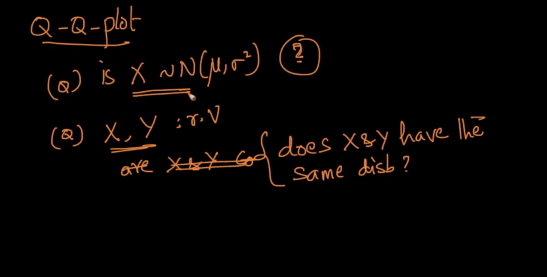 Q-Q-plot
(Q) is X ~ N(μ, σ²) ?
(Q) X, Y : r.V
are X & Y co { does X & Y have the
same distb?